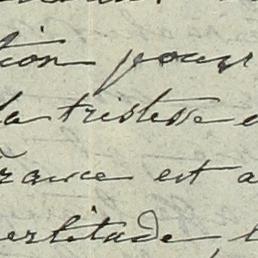 tion pour
la tristesse
France est a
ertitude,